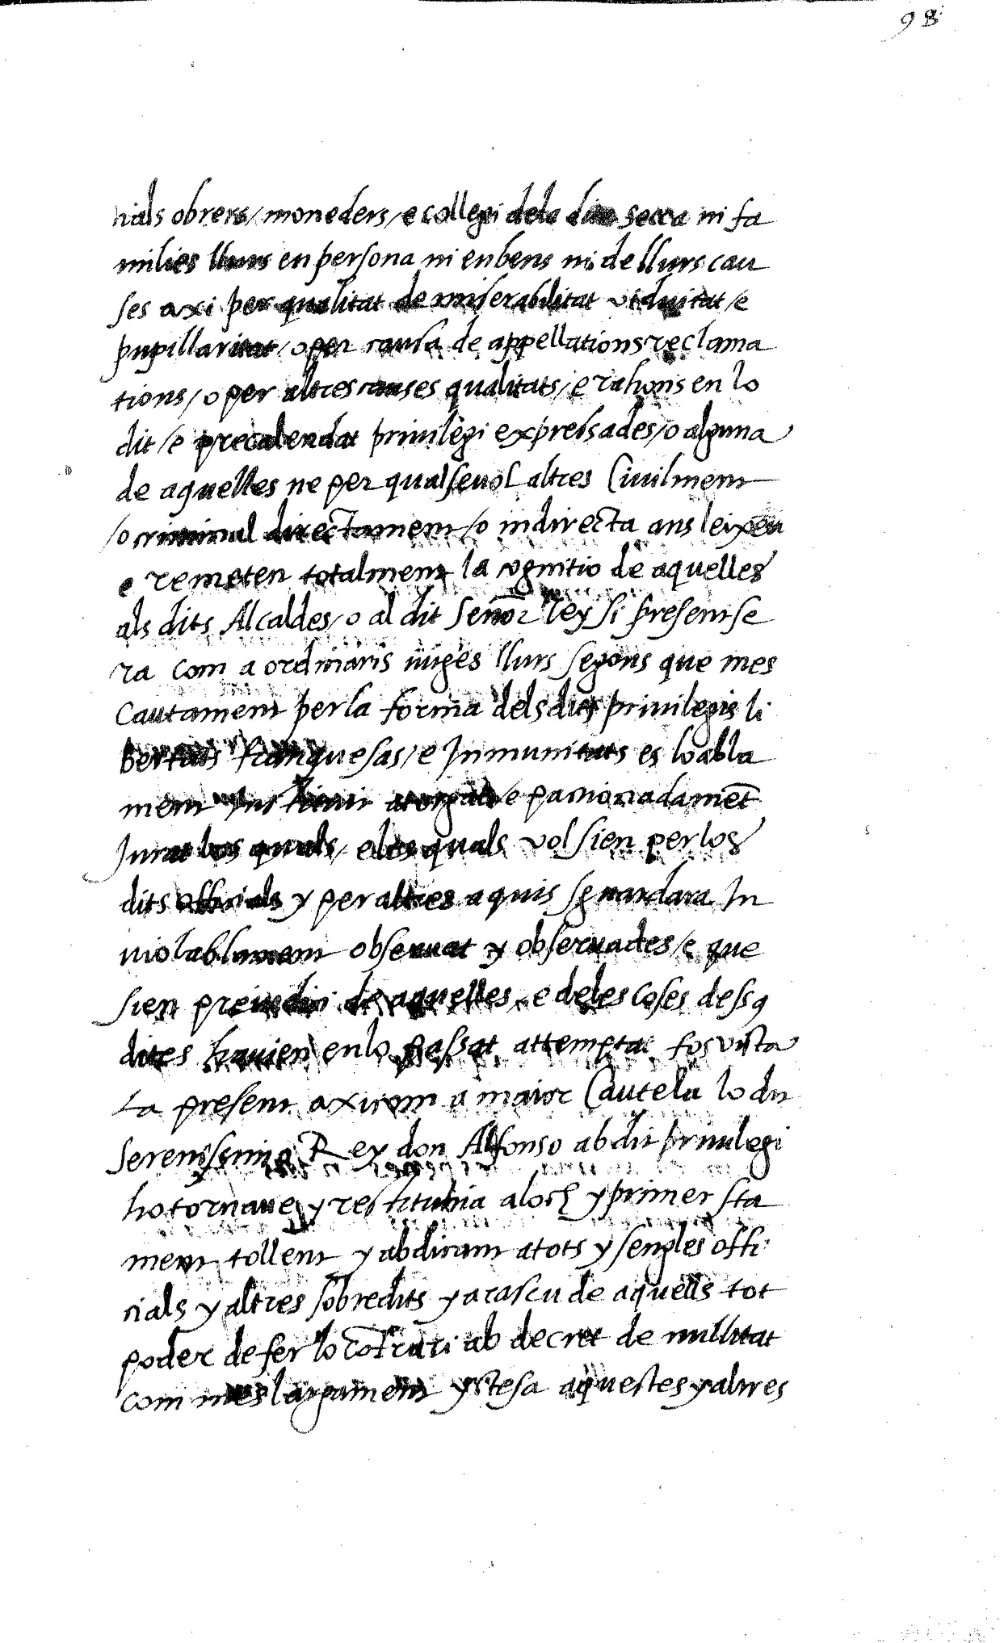 98
cials obrers / moneders / e collegi dela dita secca ni fa
milies llurs en persona ni en bens ni de llurs cau
ses axi per qualitat de miserabilitat viduitat / e
pupillaritat / o per causa de appellations reclama
tions / o per altres causes qualitats / e rahons en lo
dit / e precalendat privilegi expressades / o alguna
de aquelles ne per qualsevol altres Civilment
/ o criminal directament / o indirecta ans leixen
e remeten totalment la cognitio de aquelles
als dits Alcaldes / o al dit Señor Rey si present se
ra com a ordinaris iutges llurs segons que mes
Cautament per la forma dels dits privilegis li
bertats franquesas / e Inmunitats es loabla
ment atorgats e pactionadamēt
Jurat los quals / e les quals vol sien per los
dits officials y per altres a quis sguardara In
violablament observat y observades / e que
sien preiudici de aquelles e deles coses desq̄
dites havien en lo passat attemptat fos vista
La present axi com a maior Cautela lo dit
Serenissimo Rey don Alfonso ab dit privilegi
ho tornave y restituhia a loch y primer sta
ment tollent y abdicant a tots y sengles offi
cials y altres sobredits y a cascu de aquells tot
poder de fer lo cōtrari ab decret de nullitat
com mes largament y stesa aquestes y altres